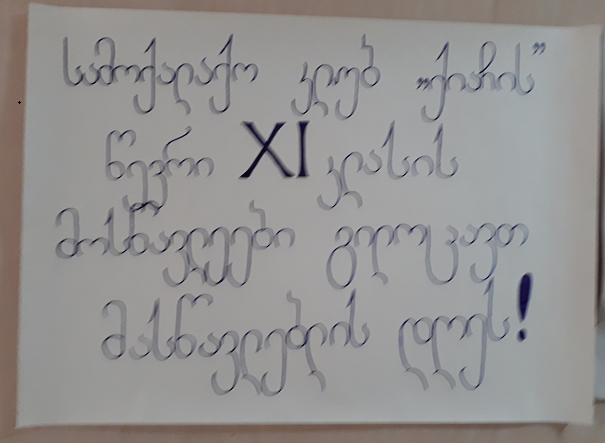 სამოქალაქო კლუბ „ქიარის”
წევრი XI კლასის
მოსწავლეები გილოცავთ
მასწავლებლის დღეს!